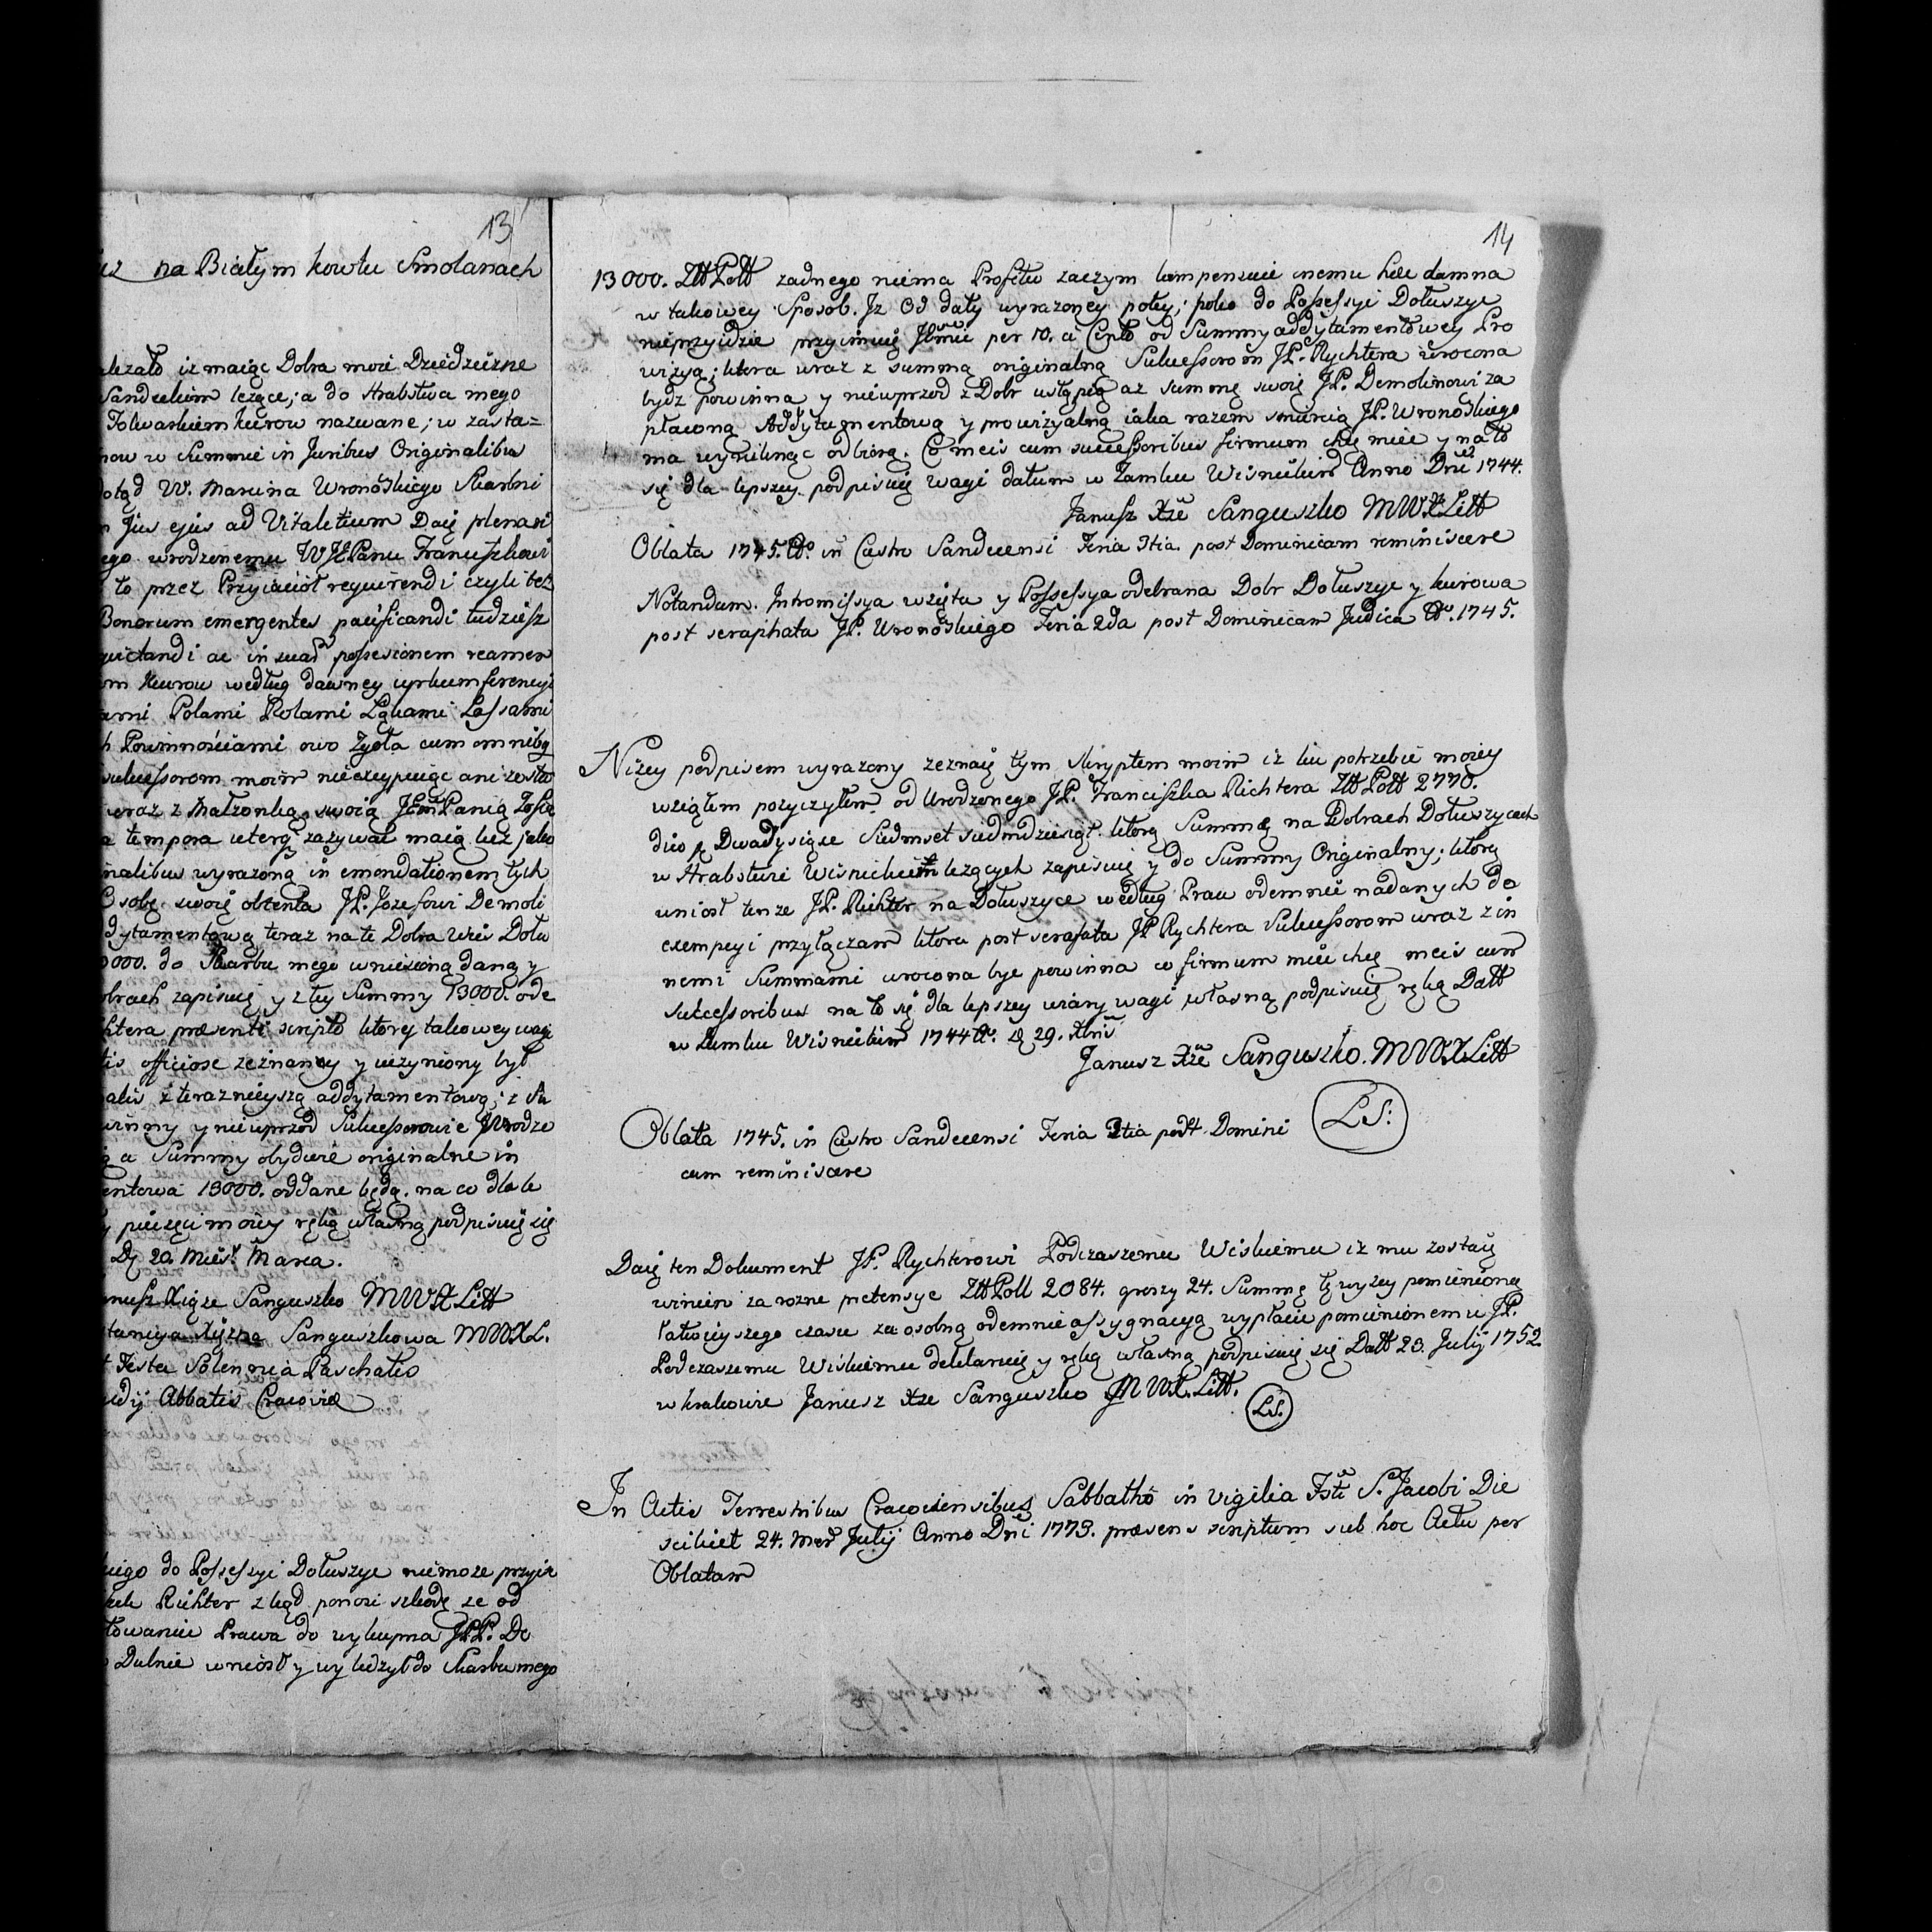 13
na Białym kowlu Smolanach
iż maiąc Dobra moie Dziedziczne
leżące; a do Hrabstwa mego
Folwarkiem kurow nazwane; w zasta=
w Summie in Juribus Originalibus
W. Marcina Wronoskiego Skarbni
Jus ejus ad Vitaletium Daię plenari
urodzonemu WJPanu Franciszkowi
to przez Przyiaciół requirendi czyli też
Bonorum emergentes pacificandi tudziesz
ac in suam possesionem
Kurow według dawney cyrkumferencyi
Polami Rolami Łąkami Lassami
Powinnościami owo Zgoła cum omnibg
sukcessorom moim nieexcypuiąc ani
wraz z Małzonką swoią JEm Panią Zofią
tempora uterq zażywać maią też jako
wyrazoną in emendationem tych
Osobę swoię obzenta JP. Jozefowi Demoli
teraz na te Dobra Wieś Dołu
do Skarbu mego wniesioną daną y
zapisuię y z tey Summy 13000. ode
præsenti scripto ktory takowey wagi
officiose zeznanny y uczyniony był
z teraznieyszą addytamentową; z Su
y nieuprzod Sukcessorowie Urodze
a Summy obydwie originalne in
13000. oddane będą. na co dla le
pieczęci moiey ręką własną podpisuię się
D 20. Mies. Marca.
Xiąże Sanguszko MWXLitt
Xiężna Sanguszkowa MWXL.
Festa Solennia Paschatis
Abbatis Cracoviæ
do Possessyi Dołuszyc niemoże przyiś
Richter z kąd ponosi szkodę że od
Prawa do wykupna JPP. De
Dulnie wniosł y wyliczył do Skarbu mego
14
13000. Ztt Poll zadnego niema Profitu zaczym kompensuie inemu hæc damna
w takowey Sposob. Jz Od daty wyrazoney poty; poko do Possessyi Dołuszyc
nieprzyidzie przyimuię Jmie per 10. a Cento od Summy addytamentowey Pro
wizyą; ktora wraz z summą originalną Sukcessorom JP. Rychtera wrocona
bydz powinna y nieuprzod z Dobr ustąpią aż summę swoię JP. Demolinowi za
płaconą Addytamentową y prowizyalną iaka razem smiercią JP. Wronoskiego
ma wyniknąc odbiorą. Co meis cum successoribus firmum chcę miec y na to
się dla lepszey podpisuię wagi datum w Zamku Wisnickim Anno Dni 1744.
Janusz Xże Sanguszko MWXLitt
Oblata 1745. Ao. in Castro Sandecensi Feria 3tia post Dominicam reminiscere
Notandum. Intromissya wzięta y Possessya odebrana Dobr Dołuszyc y kurowa
post seraphata JP. Wronoskiego Feria 2da post Dominicam Judica Ao. 1745.
Niżey podpisem wyrazony zeznaię tym skryptem moim iż ku potrzebie moiey
wziąłem pozyczyłem od Urodzonego JP. Franciszka Richtera Ztt Poll 2770.
dico Dwadysiące Siedmset siedmdziesiąt. ktorą Summę na Dobrach Dołuszycach
w Hrabstwie Wisnickim leżących zapisuię y do Summy Originalny; ktorą
uniosł tenże JP. Richter na Dołuszyce według Praw odemnie nadanych do
exempcyi przyłączam ktora post serafata JP Rychtera Sukcessorom wraz z in
nemi Summami wrocona byc powinna co firmum mieć chcę meis cum
sukcessoribus na to się dla lepszey wiary wagi własną podpisuię ręką Datt
w Zamku Wisnickim 1744 Ao. D 29. Xbris
Janusz Xże Sanguszko. MWXLitt
L S:
Oblata 1745. in Castro Sandecensi Feria 3tia post Domini
cam reminiscere
Daię ten Dokument JP. Rychterowi Podczaszemu Wiskiemu iż mu zostaię
winien za rożne pretensye Ztt Poll 2084. groszy 24. Summę tę wyzey pomienioną
łatwieyszego czasu za osobną odemnie assygnacyą wypłacie pomienionemu JP.
Podczaszemu Wiskiemu deklaruię y ręką własną podpisuię się Datt 23. Julij 1752.
w krakowie Janusz Xże Sanguszko MWX. Litt.
L.S.
In Actis Terrestribus Cracoviensibus Sabbatho in vigilia Fsti S. Jacobi Die
scilicet 24. Mens Julij Anno Dni 1773. præsens scriptum sub hoc Actu per
Oblatam